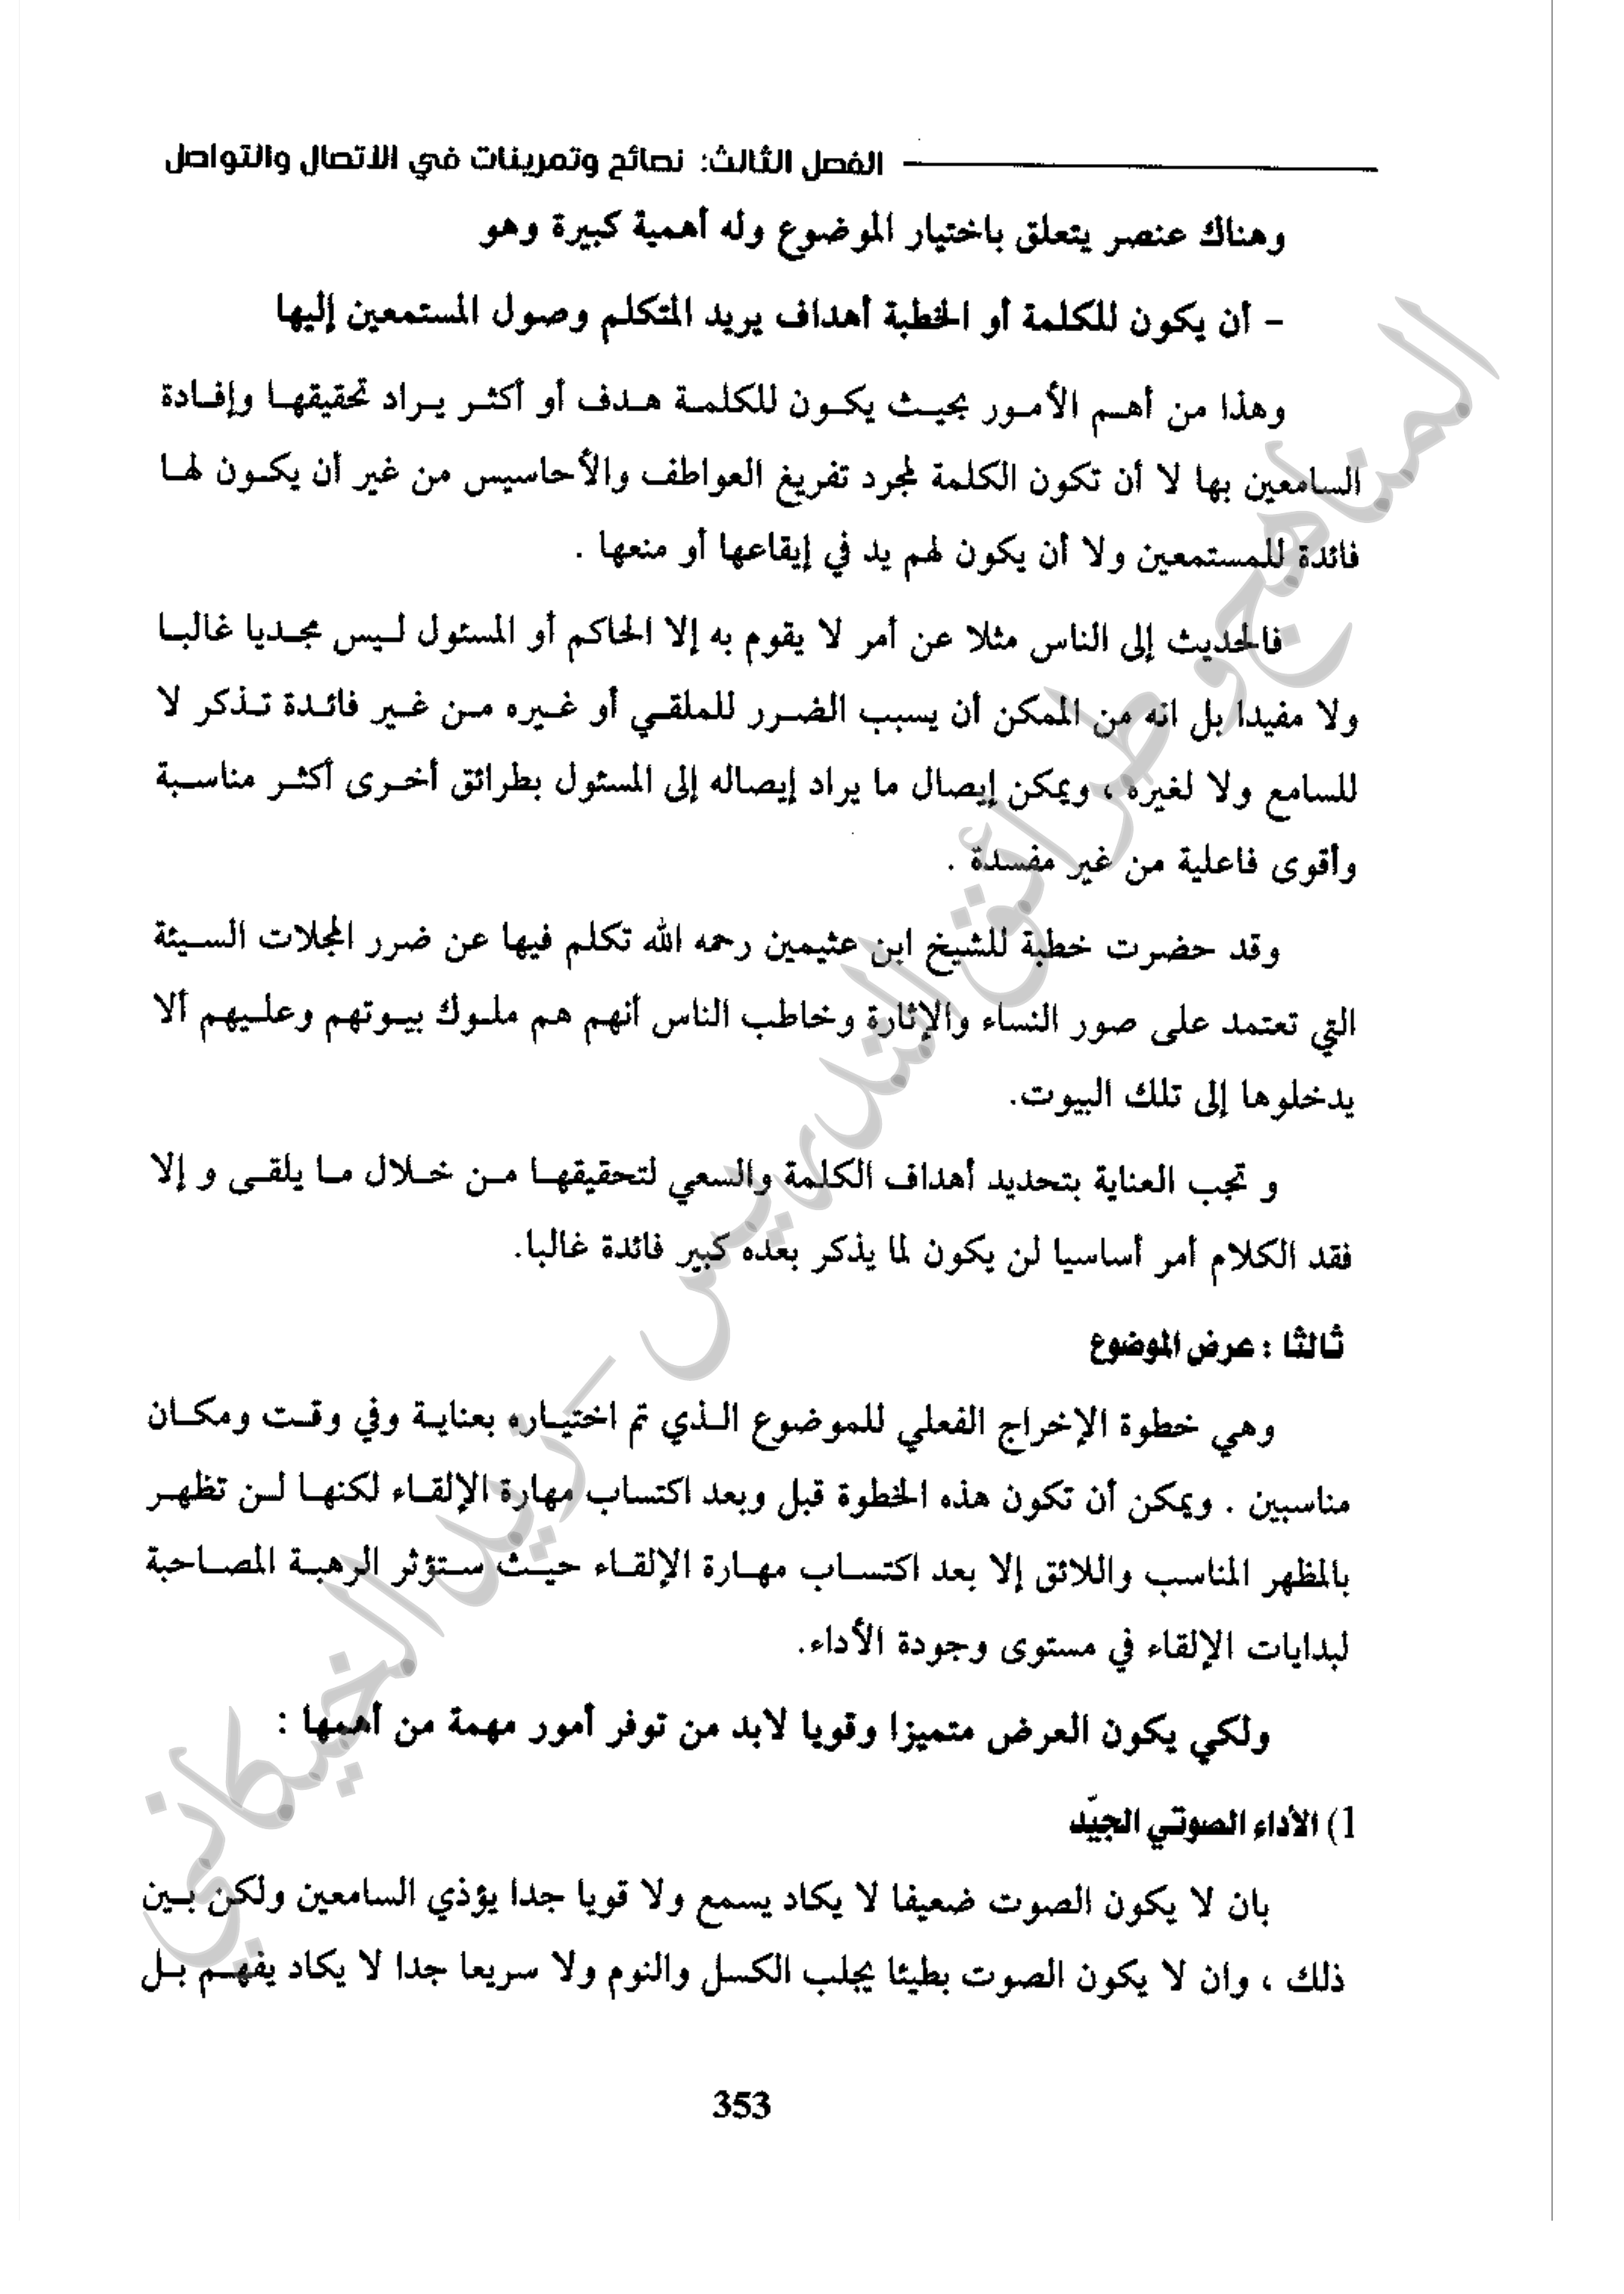 الفصل الثالث: نصائح وتمرينات في الاتصال والتواصل
وهناك عنصر يتعلق باختيار الموضوع وله أهمية كبيرة وهو
- أن يكون للكلمة أو الخطبة أهداف يريد المتكلم وصول المستمعين إليها
وهذا من أهم الأمور بحيث يكون للكلمة هدف أو أكثر يراد تحقيقها وإفادة
السامعين بها لا أن تكون الكلمة لمجرد تفريغ العواطف والأحاسيس من غير أن يكون لها
فائدة للمستمعين ولا أن يكون لهم يد في إيقاعها أو منعها .
فالحديث إلى الناس مثلا عن أمر لا يقوم به إلا الحاكم أو المسئول ليس مجديا غالبا
ولا مفيدا بل انه من الممكن أن يسبب الضرر للملقي أو غيره من غير فائدة تذكر لا
للسامع ولا لغيره ، ويمكن إيصال ما يراد إيصاله إلى المسئول بطرائق أخرى أكثر مناسبة
وأقوى فاعلية من غير مفسدة .
وقد حضرت خطبة للشيخ ابن عثيمين رحمه الله تكلم فيها عن ضرر المجلات السيئة
التي تعتمد على صور النساء والإثارة وخاطب الناس أنهم هم ملوك بيوتهم وعليهم ألا
يدخلوها إلى تلك البيوت.
و تجب العناية بتحديد أهداف الكلمة والسعي لتحقيقها من خلال ما يلقى و إلا
فقد الكلام أمر أساسيا لن يكون لما يذكر بعده كبير فائدة غالبا.
ثالثا : عرض الموضوع
وهي خطوة الإخراج الفعلي للموضوع الذي تم اختياره بعناية وفي وقت ومكان
مناسبين . ويمكن أن تكون هذه الخطوة قبل وبعد اكتساب مهارة الإلقاء لكنها لن تظهر
بالمظهر المناسب واللائق إلا بعد اكتساب مهارة الإلقاء حيث ستؤثر الرهبة المصاحبة
لبدايات الإلقاء في مستوى وجودة الأداء.
ولكي يكون العرض متميزا وقويا لابد من توفر أمور مهمة من أهمها :
1) الأداء الصوتي الجيّد
بان لا يكون الصوت ضعيفا لا يكاد يسمع ولا قويا جدا يؤذي السامعين ولكن بين
ذلك ، وان لا يكون الصوت بطيئا يجلب الكسل والنوم ولا سريعا جدا لا يكاد يفهم بل
353
المناهج وطرائق التدريس - زيد الخيكاني